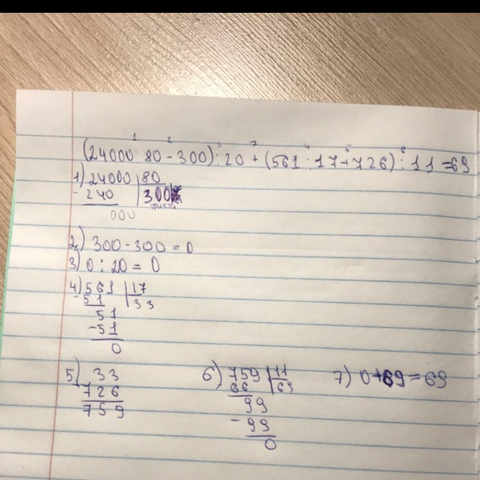 1 2 3 7 4 5 6
(24000:80-300):20+(561:17+726):11=69
1) 24000 80
- 240 300
000
2) 300-300=0
3) 0:20=0
4) 561 17
- 51 33
51
- 51
0
5) 33
726
759
6) 759 11
66 69
99
- 99
0
7) 0+69=69